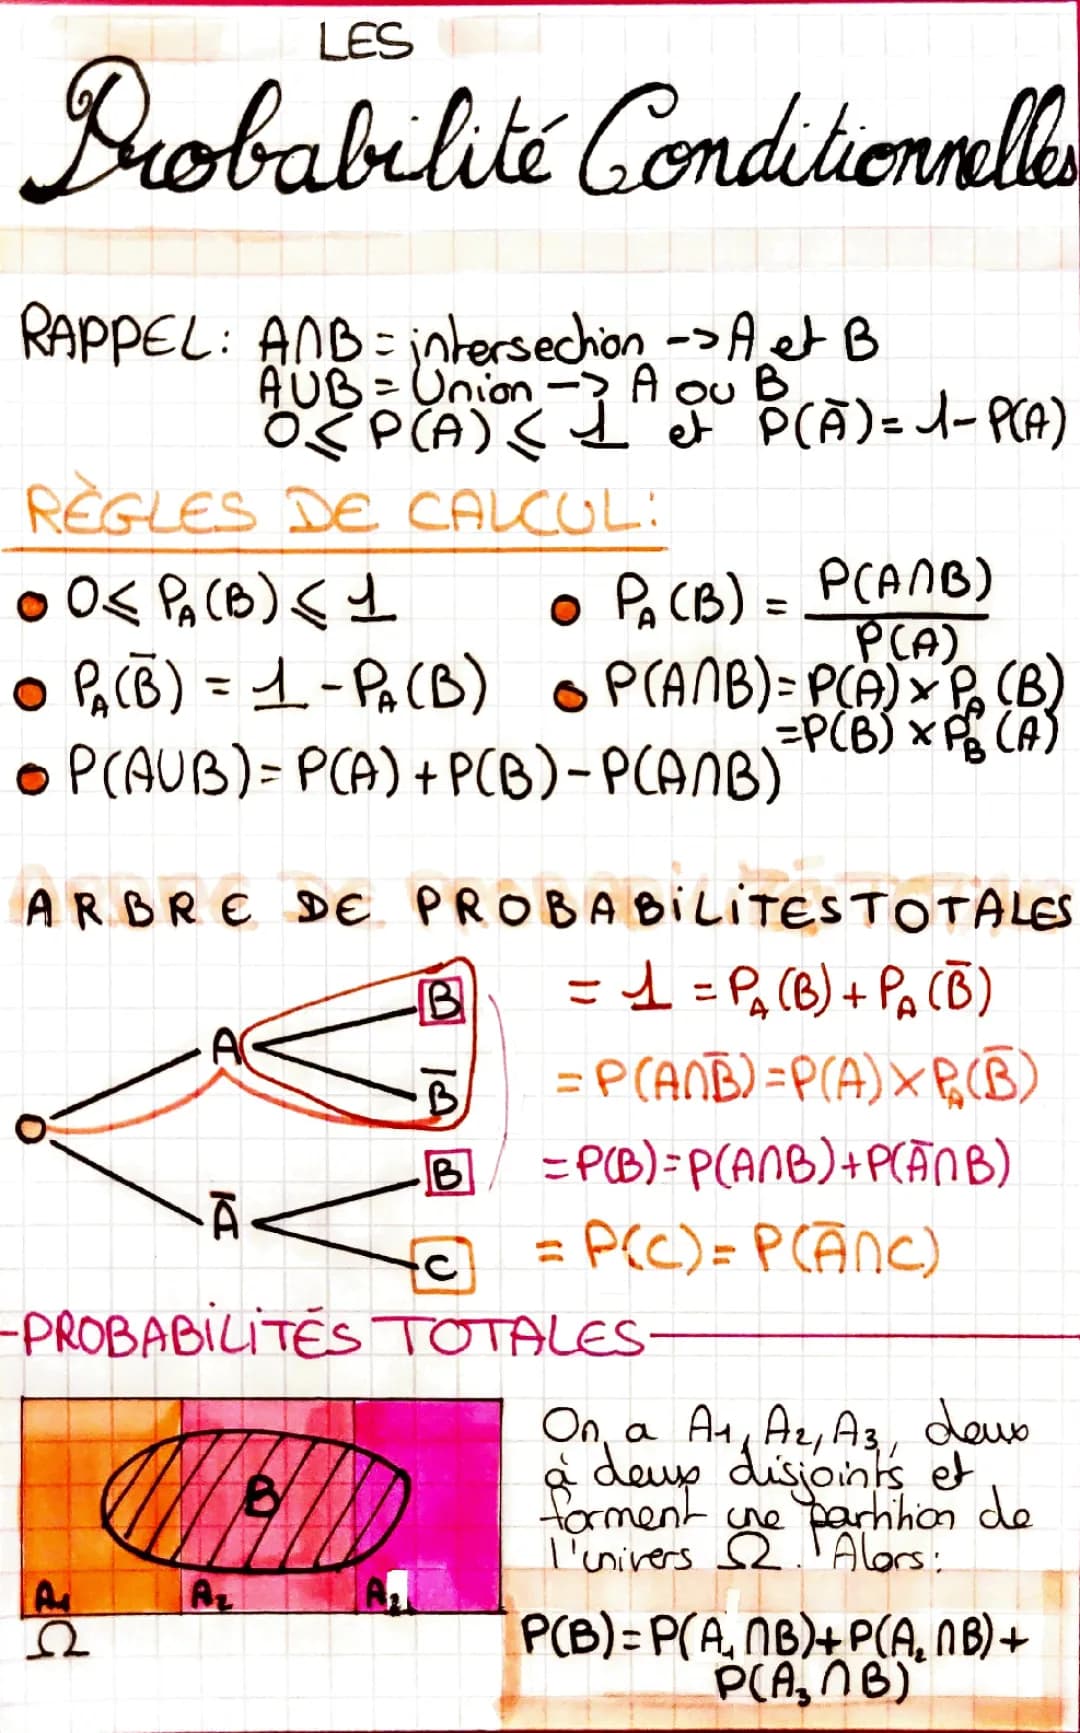 LES
Probabilité Conditionnelles
RAPPEL: A∩B = intersection -> A et B
A∪B = Union -> A ou B
0 ⩽ P(A) ⩽ 1 et P(Ā) = 1 - P(A)
RÈGLES DE CALCUL:
• 0 ⩽ P_A(B) ⩽ 1
• P_A(B) = P(A∩B) / P(A)
• P_A(B̄) = 1 - P_A(B)
• P(A∩B) = P(A) × P_A(B)
= P(B) × P_B(A)
• P(A∪B) = P(A) + P(B) - P(A∩B)
ARBRE DE PROBABiLiTÉS TOTALES
B
= 1 = P_A(B) + P_A(B̄)
A
B̄
= P(A∩B̄) = P(A) × P_A(B̄)
B
= P(B) = P(A∩B) + P(Ā∩B)
Ā
C
= P(C) = P(Ā∩C)
-PROBABiLiTÉS TOTALES
B
A₁ A₂
Ω
On a A₁, A₂, A₃, deux
à deux disjoints et
forment une partition de
l'univers Ω. Alors:
P(B) = P(A₁∩B) + P(A₂∩B) +
P(A₃∩B)